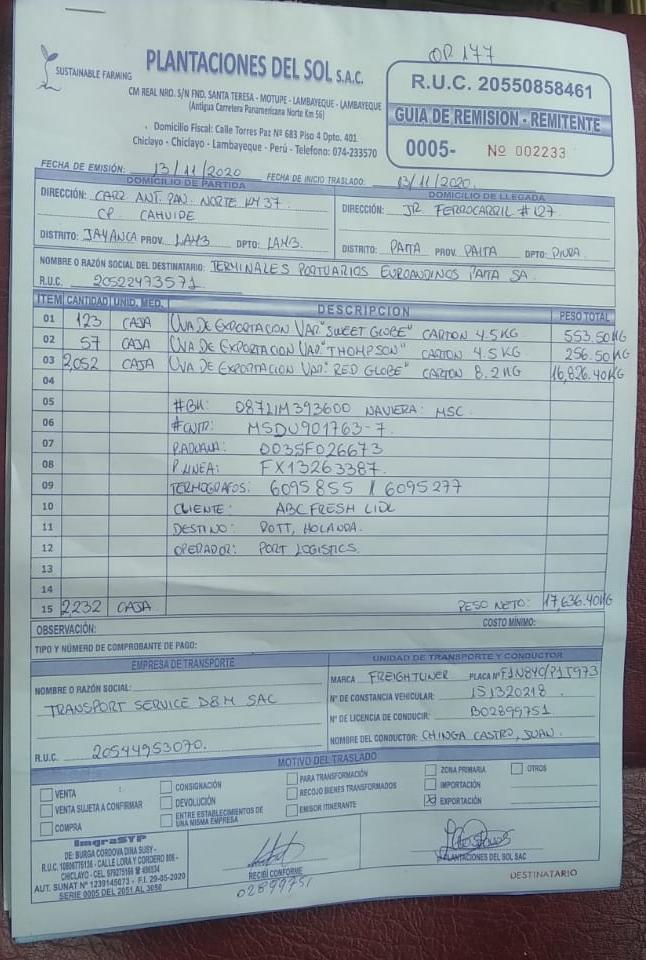 OP 177
SUSTAINABLE FARMING
PLANTACIONES DEL SOL S.A.C.
CM REAL NRO. S/N FND. SANTA TERESA - MOTUPE - LAMBAYEQUE - LAMBAYEQUE
(Antigua Carretera Panamericana Norte Km 56)
Domicilio Fiscal: Calle Torres Paz Nº 683 Piso 4 Dpto. 401
Chiclayo - Chiclayo - Lambayeque - Perú - Telefono: 074-233570
R.U.C. 20550858461
GUIA DE REMISION - REMITENTE
0005- Nº 002233
FECHA DE EMISIÓN: 13/11/2020 FECHA DE INICIO TRASLADO: 13/11/2020.
DOMICILIO DE PARTIDA
DIRECCIÓN: CARR. ANT. PAN. NORTE KM 37
CP. CAHUIDE
DISTRITO: JAYANCA PROV. LAMB DPTO: LAMB.
DOMICILIO DE LLEGADA
DIRECCIÓN: JR. FERROCARRIL # 127
DISTRITO: PAITA PROV. PAITA DPTO: PIURA
NOMBRE O RAZÓN SOCIAL DEL DESTINATARIO: TERMINALES PORTUARIOS EUROANDINOS PAITA SA.
R.U.C. 20522473571
ITEM CANTIDAD UNID. MED. DESCRIPCION PESO TOTAL
01 123 CAJA UVA DE EXPORTACION VAR "SWEET GLOBE" CARTON 4.5KG 553.50KG
02 57 CAJA UVA DE EXPORTACION VAR. "THOMPSON" CARTON 4.5KG 256.50KG
03 2,052 CAJA UVA DE EXPORTACION VAR. "RED GLOBE" CARTON 8.2KG 16,826.40KG
04
05 #BK: 087LIM393600 NAVIERA: MSC
06 #CNTR: MSDU901763-7.
07 P.ADUANA: 0035F026673
08 P. LINEA: FX13263387.
09 TERMOGRAFOS: 6095855 / 6095277
10 CLIENTE: ABC FRESH LIDL
11 DESTINO: ROTT, HOLANDA.
12 OPERADOR: PORT LOGISTICS.
13
14
15 2,232 CAJA PESO NETO: 17,636.40KG
OBSERVACIÓN: COSTO MÍNIMO:
TIPO Y NÚMERO DE COMPROBANTE DE PAGO:
EMPRESA DE TRANSPORTE
NOMBRE O RAZÓN SOCIAL:
TRANSPORT SERVICE D&M SAC
R.U.C. 20544953070.
UNIDAD DE TRANSPORTE Y CONDUCTOR
MARCA FREIGHTLINER PLACA Nº F1N840/P1T973
Nº DE CONSTANCIA VEHICULAR: 151320218
Nº DE LICENCIA DE CONDUCIR: B02899751
NOMBRE DEL CONDUCTOR: CHINGA CASTRO, JUAN.
MOTIVO DEL TRASLADO
VENTA
VENTA SUJETA A CONFIRMAR
COMPRA
CONSIGNACIÓN
DEVOLUCIÓN
ENTRE ESTABLECIMIENTOS DE
UNA MISMA EMPRESA
PARA TRANSFORMACIÓN
RECOJO BIENES TRANSFORMADOS
EMISOR ITINERANTE
ZONA PRIMARIA
IMPORTACIÓN
EXPORTACIÓN
OTROS
ImgraSYP
DE: BURGA CORDOVA DINA SUSY -
R.U.C. 10806776136 - CALLE LORA Y CORDERO 806 -
CHICLAYO - CEL. 979275166
AUT. SUNAT Nº 1239145073 - F.I. 29-05-2020
SERIE 0005 DEL 2051 AL 3050
RECIBÍ CONFORME
02899751
PLANTACIONES DEL SOL SAC
DESTINATARIO